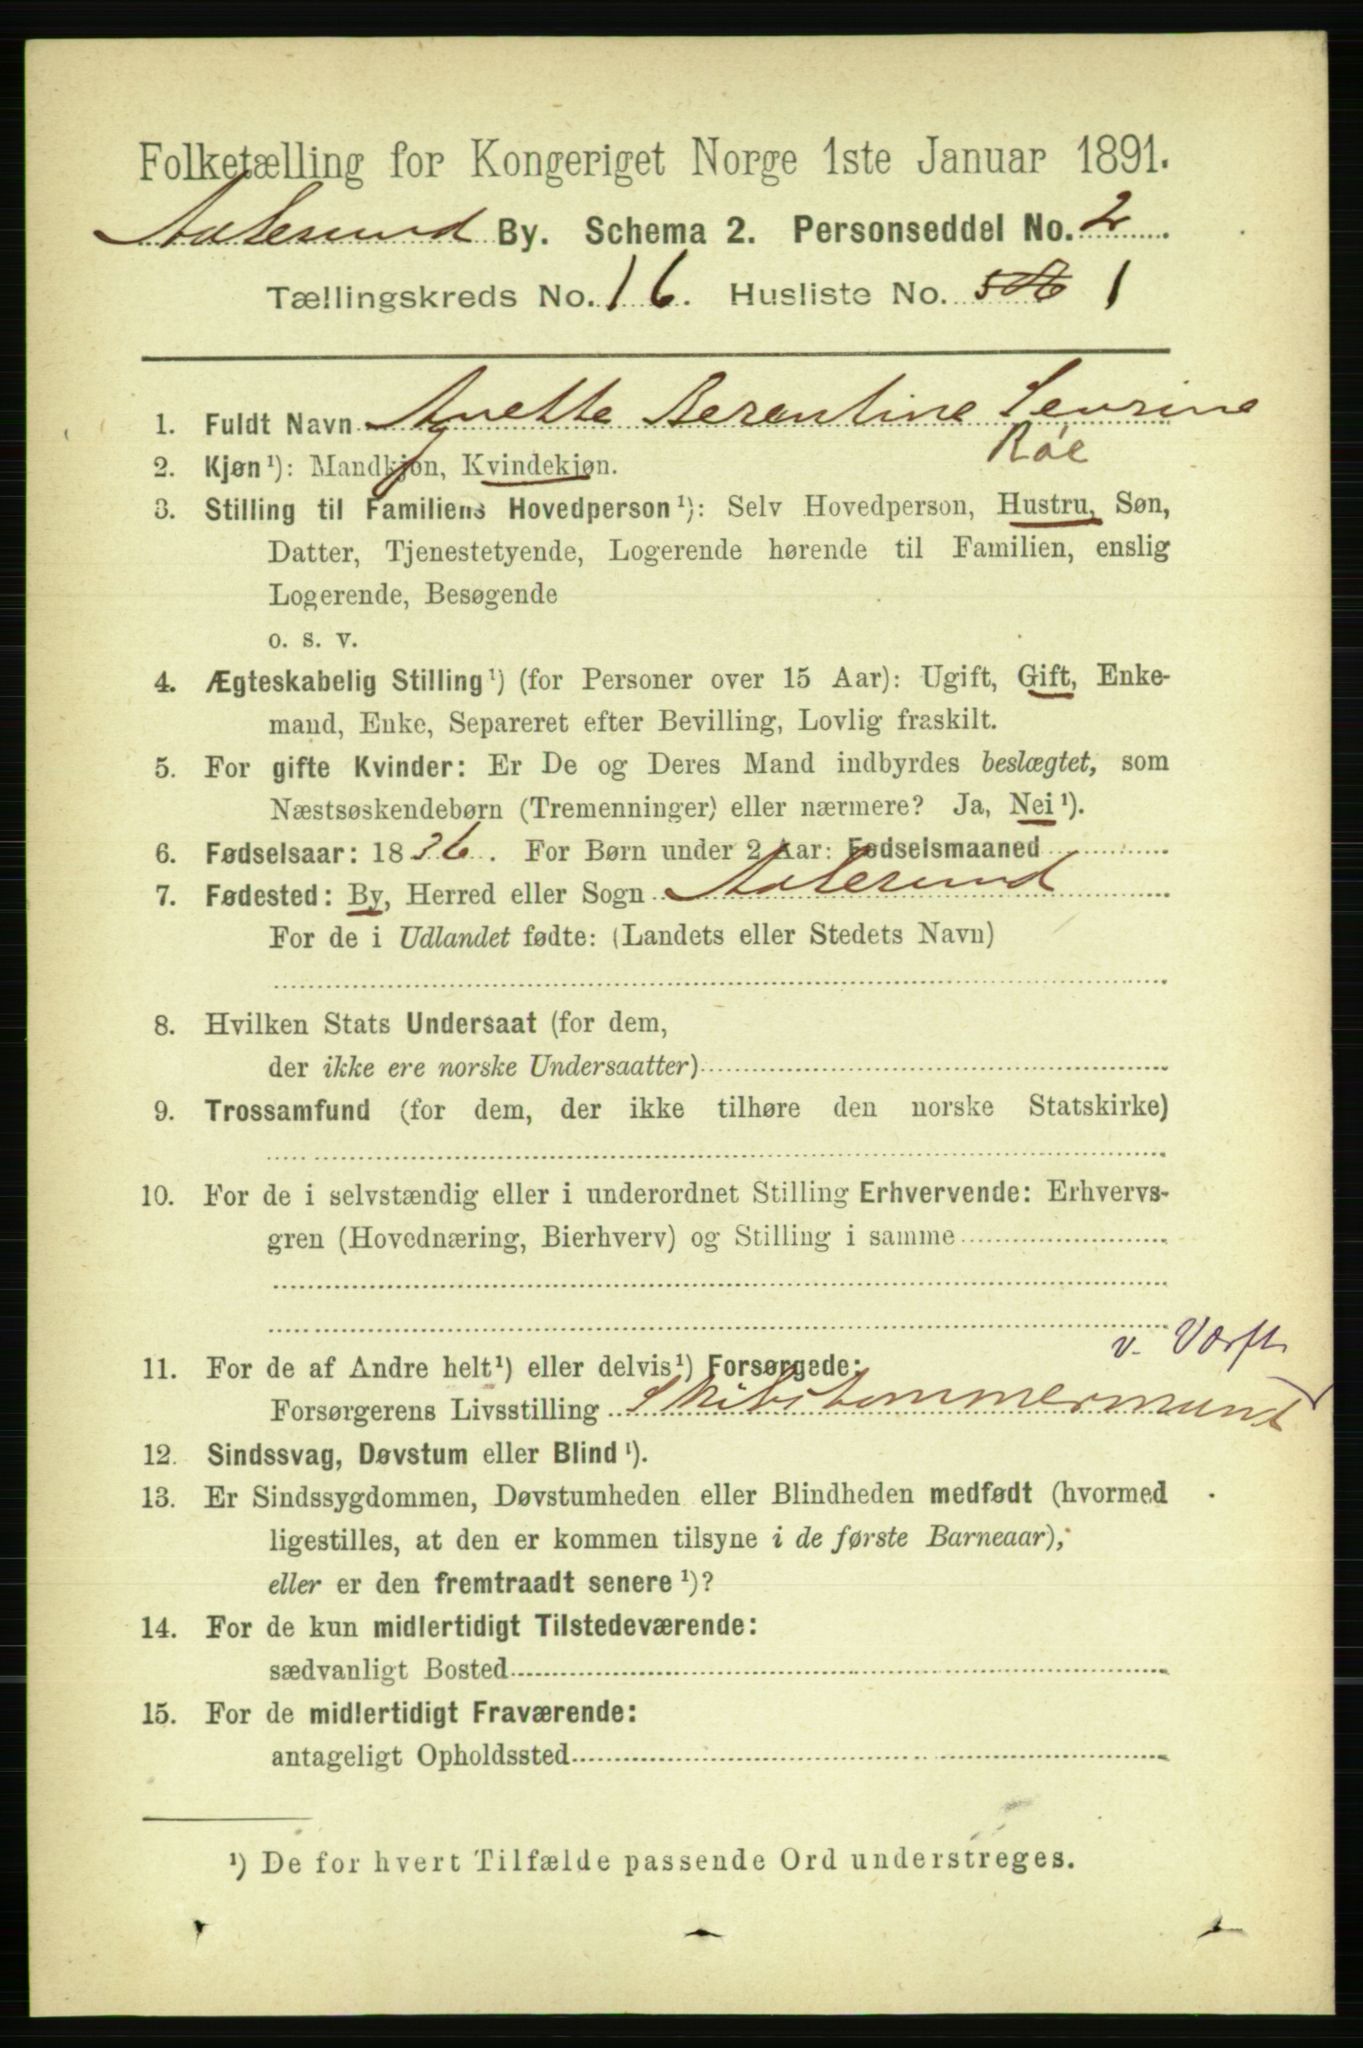 Folketælling for Kongeriget Norge 1ste Januar 1891.
Aalesund By. Schema 2. Personseddel No. 2
Tællingskreds No. 16. Husliste No. 1
1. Fuldt Navn Anette Berentine Sevrine
Røe
2. Kjøn¹): Mandkjøn, Kvindekjøn.
3. Stilling til Familiens Hovedperson¹): Selv Hovedperson, Hustru, Søn,
Datter, Tjenestetyende, Logerende hørende til Familien, enslig
Logerende, Besøgende
o. s. v.
4. Ægteskabelig Stilling¹) (for Personer over 15 Aar): Ugift, Gift, Enke-
mand, Enke, Separeret efter Bevilling, Lovlig fraskilt.
5. For gifte Kvinder: Er De og Deres Mand indbyrdes beslægtet, som
Næstsøskendebørn (Tremenninger) eller nærmere? Ja, Nei¹).
6. Fødselsaar: 1836. For Børn under 2 Aar: Fødselsmaaned
7. Fødested: By, Herred eller Sogn Aalesund
For de i Udlandet fødte: (Landets eller Stedets Navn)
8. Hvilken Stats Undersaat (for dem,
der ikke ere norske Undersaatter)
9. Trossamfund (for dem, der ikke tilhøre den norske Statskirke)
10. For de i selvstændig eller i underordnet Stilling Erhvervende: Erhvervs-
gren (Hovednæring, Bierhverv) og Stilling i samme
v. Værft
11. For de af Andre helt¹) eller delvis¹) Forsørgede:
Forsørgerens Livsstilling Skibstømmermand
12. Sindssvag, Døvstum eller Blind¹).
13. Er Sindssygdommen, Døvstumheden eller Blindheden medfødt (hvormed
ligestilles, at den er kommen tilsyne i de første Barneaar),
eller er den fremtraadt senere¹)?
14. For de kun midlertidigt Tilstedeværende:
sædvanligt Bosted
15. For de midlertidigt Fraværende:
antageligt Opholdssted
¹) De for hvert Tilfælde passende Ord understreges.